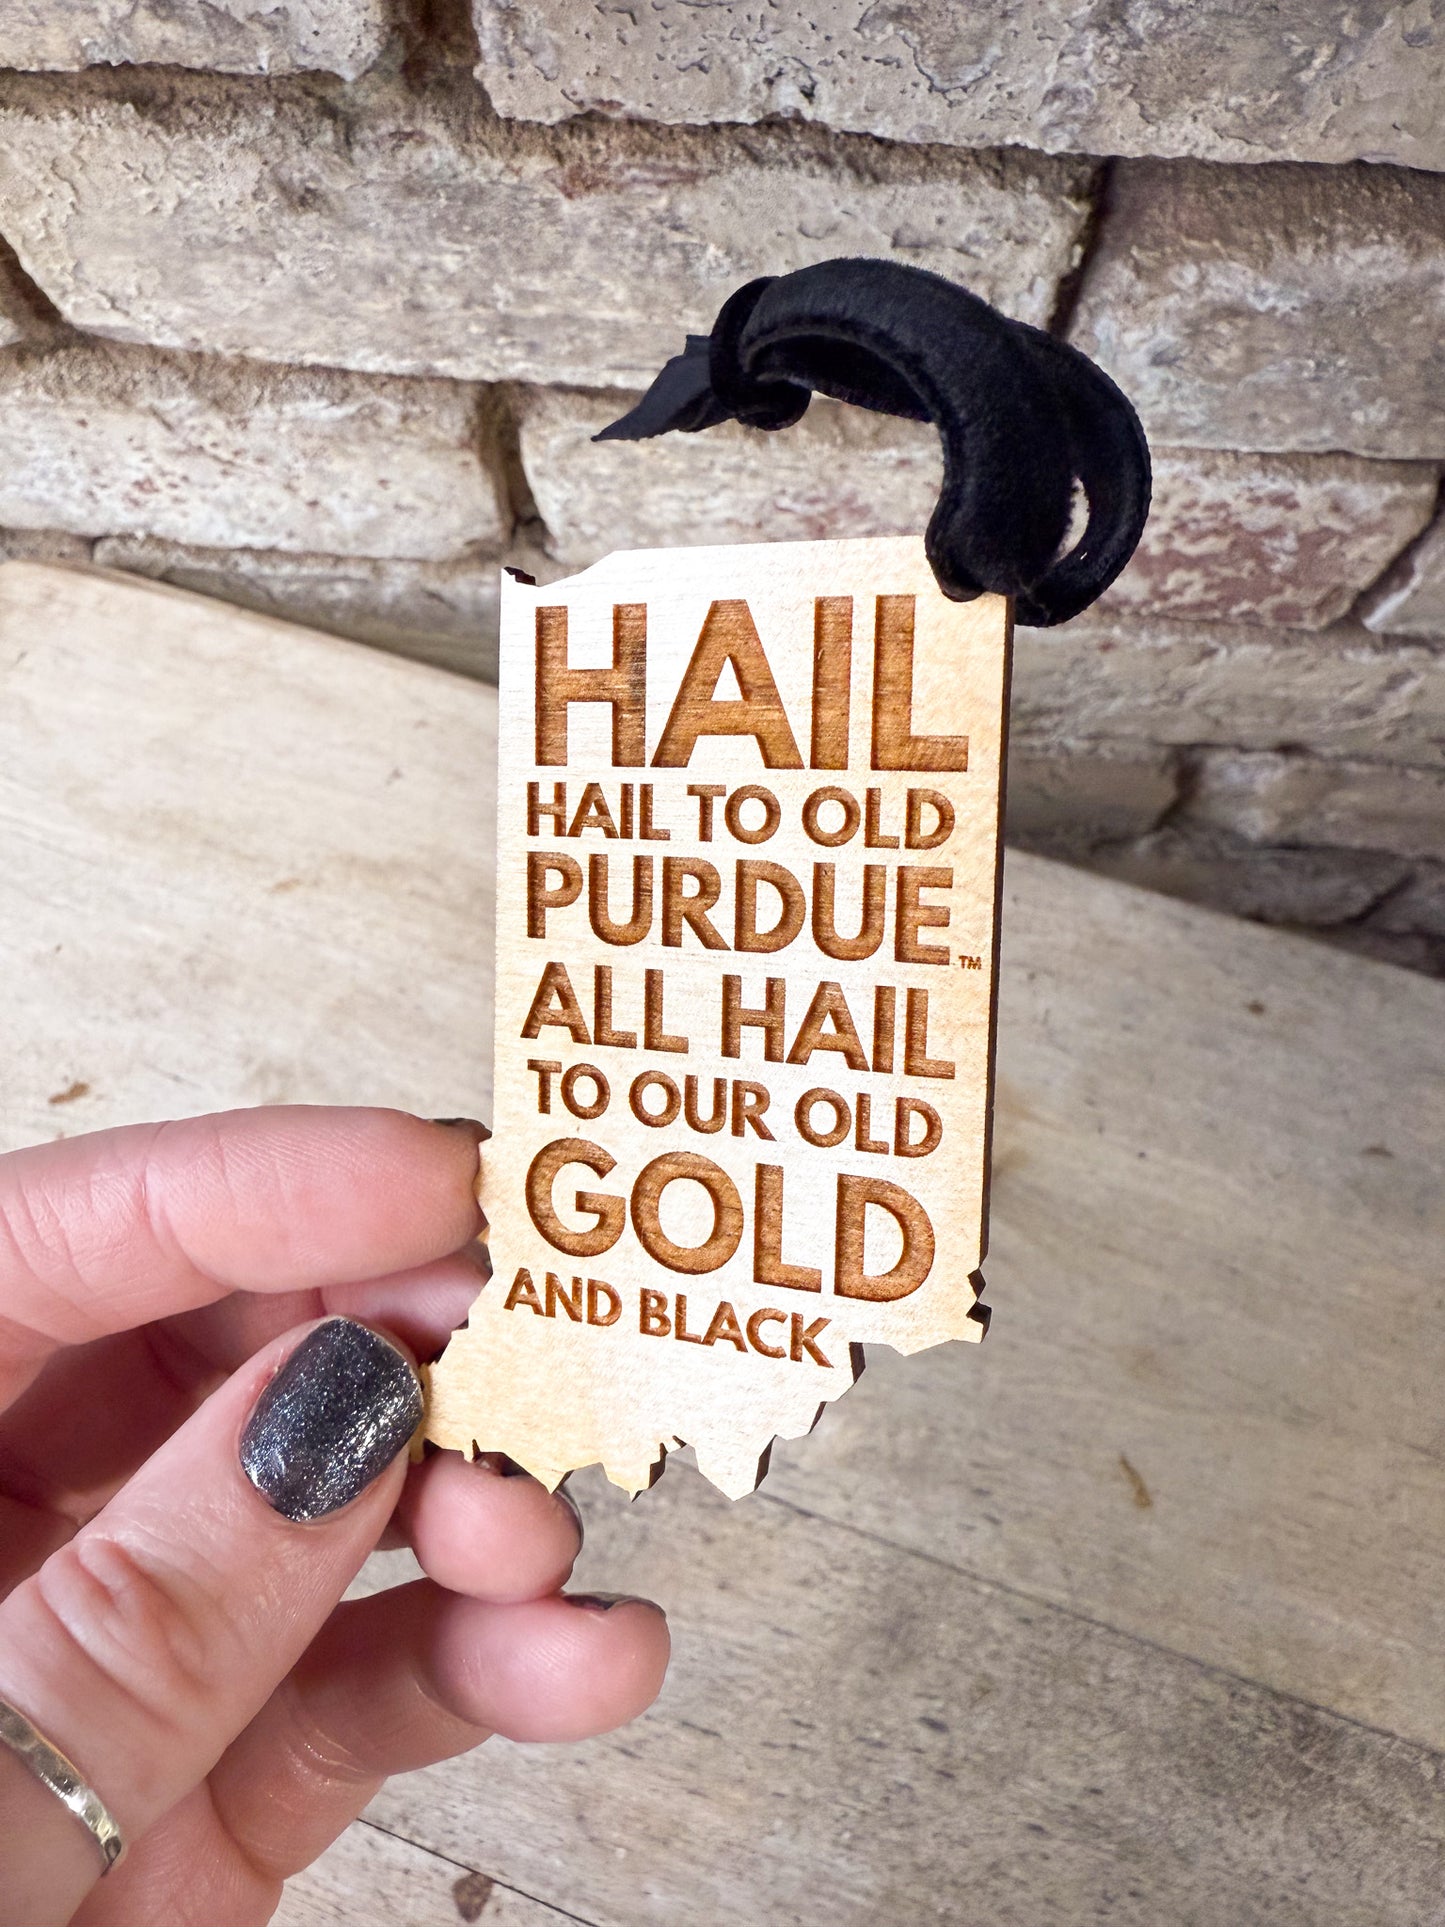 HAIL
HAIL TO OLD
PURDUE™
ALL HAIL
TO OUR OLD
GOLD
AND BLACK